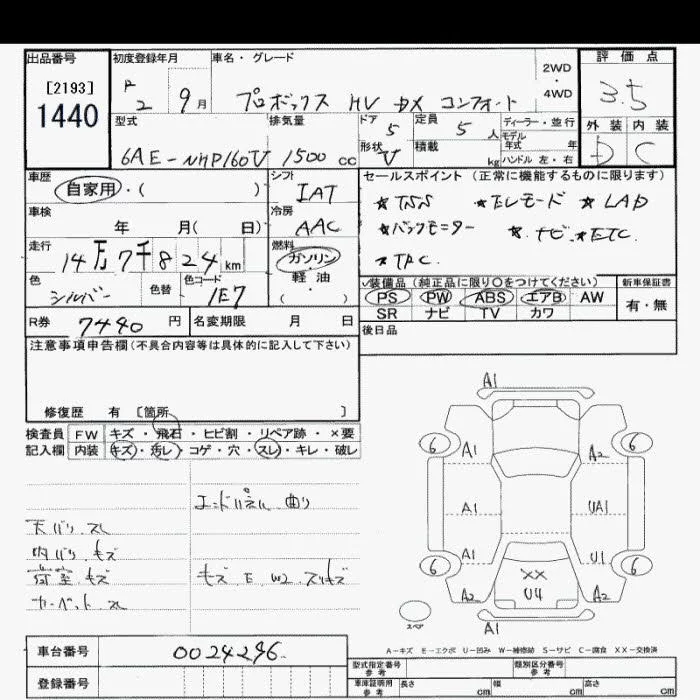 出品番号
[2193]
1440
初度登録年月
R 2 9月
車名・グレード
プロボックス HV DX コンフォート
2WD
・
4WD
評価点
3.5
外装 内装
D C
型式
6AE-NHP160V
排気量
1500 cc
ドア 5
形状 V
定員 5 人
積載 kg
ディーラー・並行
モデル
年式 年
ハンドル 左・右
車歴
自家用・( )
車検
年 月( 日)
走行
14万7千824km
色
シルバー
色替
色コード
1E7
シフト
IAT
冷房
AAC
燃料
ガソリン
・
軽油
・
( )
セールスポイント (正常に機能するものに限ります)
★TSS ★EVモード ★LAD
★バックモニター ★ナビ.★ETC.
★TRC.
装備品 (純正品に限り〇をつけてください)
新車保証書
PS PW ABS エアB AW
SR ナビ TV カワ
有・無
R券 7490 円
名変期限 月 日
後日品
注意事項申告欄(不具合内容等は具体的に記入して下さい)
修復歴 有 [箇所 ]
検査員 FW キズ・飛石・ヒビ割・リペア跡・×要
記入欄 内装 キズ・汚レ・コゲ・穴・スレ・キレ・破レ
エンドパネル 曲り
天バリ スレ
内バリ キズ
荷室 キズ
カーペット スレ
キズ E W2 スリキズ
A1
6 A1 A2 6
A1 UA1
A1 U1
6 6
A2 A2
××
U4
スペア
A1
A-キズ E-エクボ U-凹み W-補修跡 S-サビ C-腐食 XX-交換済
車台番号 0024296
登録番号
型式指定番号
参考
類別区分番号
参考
車庫証明用
参考
長さ cm 幅 cm 高さ cm